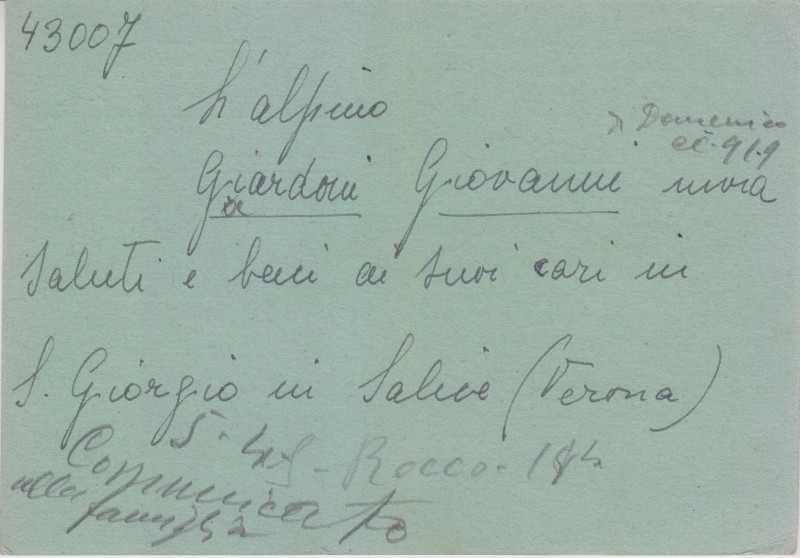 43007
L'alpino
di Domenico
cl. 919
Giardoni Giovanni invia
Saluti e baci ai suoi cari in
S. Giorgio in Salice (Verona)
5-45-Rocco-
Comunicato
alla famiglia